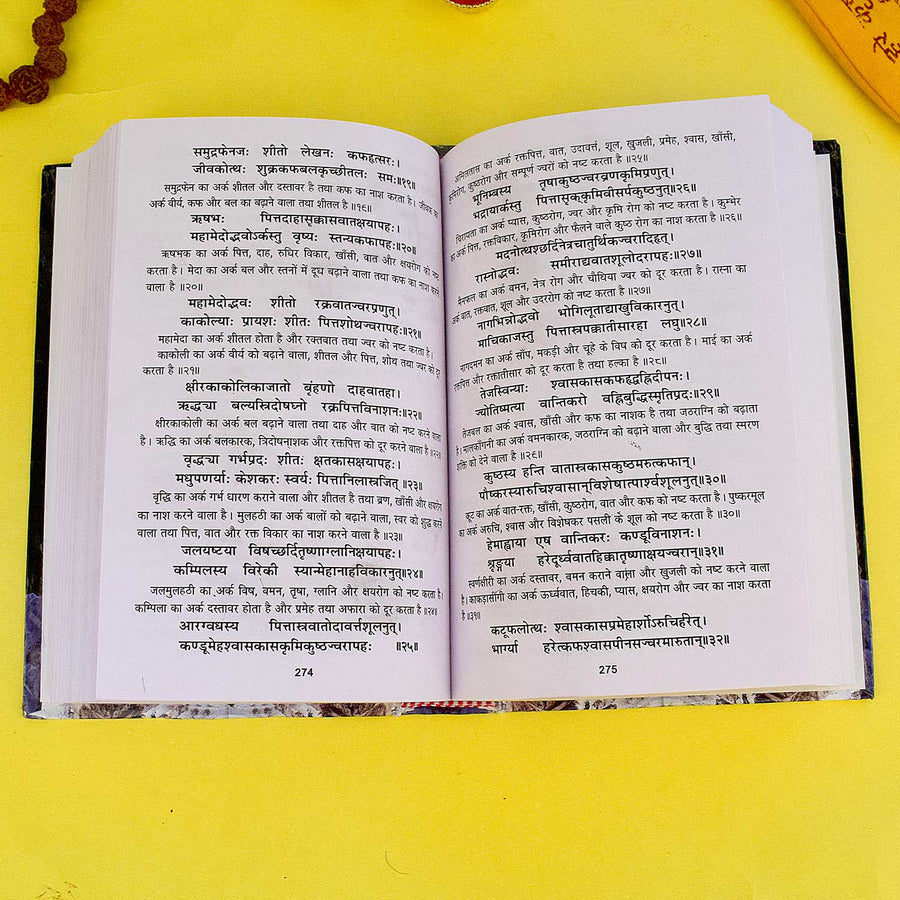 समुद्रफेनजः शीतो लेखनः कफहृत्सरः।
जीवकोत्थः शुक्रकफबलकृच्छीतलः समः॥१९॥
समुद्रफेन का अर्क शीतल और दस्तावर है तथा कफ का नाश करता है। जीवक का
अर्क वीर्य, कफ और बल का बढ़ाने वाला तथा शीतल है ॥१९॥
ऋषभजः पित्तदाहासृक्कासवातक्षयापहः।
महामेदोद्भवोऽर्कस्तु वृष्यः स्तन्यकफापहः॥२०॥
ऋषभक का अर्क पित्त, दाह, रुधिर विकार, खाँसी, वात और क्षयरोग को नष्ट
करता है। मेदा का अर्क बल और स्तनों में दूध बढ़ाने वाला तथा कफ को नष्ट करने
वाला है ॥२०॥
महामेदोद्भवः शीतो रक्रवातज्वरप्रणुत्।
काकोल्याः प्रायशः शीतः पित्तशोथज्वरापहः॥२१॥
महामेदा का अर्क शीतल होता है और रक्तवात तथा ज्वर को नष्ट करता है।
काकोली का अर्क वीर्य को बढ़ाने वाला, शीतल और पित्त, शोथ तथा ज्वर को दूर
करता है ॥२१॥
क्षीरकाकोलिकाजातो बृंहणो दाहवातहा।
ऋद्ध्या बल्यस्त्रिदोषघ्नो रक्रपित्तविनाशनः॥२२॥
क्षीरकाकोली का अर्क बल बढ़ाने वाला तथा दाह और वात को नष्ट करने वाला
है। ऋद्धि का अर्क बलकारक, त्रिदोषनाशक और रक्तपित्त को दूर करने वाला है॥२२॥
वृद्ध्या गर्भप्रदः शीतः क्षतकासक्षयापहः।
मधुपणर्याः केशकरः स्वर्यः पित्तानिलास्रजित् ॥२३॥
वृद्धि का अर्क गर्भ धारण कराने वाला और शीतल है तथा व्रण, खाँसी और क्षयरोग
का नाश करने वाला है। मुलहठी का अर्क बालों को बढ़ाने वाला, स्वर को शुद्ध करने
वाला तथा पित्त, वात और रक्त विकार का नाश करने वाला है ॥२३॥
जलयष्ट्या विषच्छर्दितृष्णाग्लानिक्षयापहः।
कम्पिलस्य विरेकी स्यान्मेहानाहविकारनुत्॥२४॥
जलमुलहठी का अर्क विष, वमन, तृषा, ग्लानि और क्षयरोग को नष्ट करता है।
कम्पिला का अर्क दस्तावर होता है और प्रमेह तथा अफारा को दूर करता है॥२४॥
आरग्वधस्य पित्तास्रवातोदावर्त्तशूलनुत्।
कण्डूमेहश्वासकासकृमिकुष्ठज्वरापहः ॥२५॥
274
अमिलतास का अर्क रक्तपित्त, वात, उदावर्त्त, शूल, खुजली, प्रमेह, श्वास, खाँसी,
कृमिरोग, कुष्ठरोग और सम्पूर्ण ज्वरों को नष्ट करता है ॥२५॥
भूनिम्बस्य तृषाकुष्ठज्वरव्रणकृमिप्रणुत्।
भद्रायार्कस्तु पित्तासृक्कृमिवीसर्पकुष्ठनुत्॥२६॥
चिरायता का अर्क प्यास, कुष्ठरोग, ज्वर और कृमि रोग को नष्ट करता है। कुम्भेर
का अर्क पित्त, रक्तविकार, कृमिरोग और फैलने वाले कुष्ठ रोग का नाश करता है ॥२६॥
मदनोत्थश्छर्दिनेत्रचातुर्थिकज्वरादिहृत्।
रास्नोद्भवः समीराद्यवातशूलोदरापहः॥२७॥
मैनफल का अर्क वमन, नेत्र रोग और चौथिया ज्वर को दूर करता है। रास्ना का
अर्क वात, रक्तवात, शूल और उदररोग को नष्ट करता है ॥२७॥
नागभिन्नोद्भवो भोगिलूताद्याखुविकारनुत्।
माचिकाजस्तु पित्तास्रपक्वातीसारहा लघु॥२८॥
नागदमन का अर्क साँप, मकड़ी और चूहे के विष को दूर करता है। माई का अर्क
रक्तपित्त और रक्तातीसार को दूर करता है तथा हल्का है ॥२८॥
तेजस्विन्याः श्वासकासकफहृद्वह्निदीपनः।
ज्योतिष्मत्या वान्तिकरो वह्निबुद्धिस्मृतिप्रदः॥२९॥
तेजबल का अर्क श्वास, खाँसी और कफ का नाशक है तथा जठराग्नि को बढ़ाता
है। मालकाँगनी का अर्क वमनकारक, जठराग्नि को बढ़ाने वाला और बुद्धि तथा स्मरण
शक्ति को देने वाला है ॥२९॥
कुष्ठस्य हन्ति वातास्रकासकुष्ठमरुत्कफान्।
पौष्करस्यारुचिश्वासान्विशेषात्पार्श्वशूलनुत्॥३०॥
कूट का अर्क वात-रक्त, खाँसी, कुष्ठरोग, वात और कफ को नष्ट करता है। पुष्करमूल
का अर्क अरुचि, श्वास और विशेषकर पसली के शूल को नष्ट करता है ॥३०॥
हेमाह्वाया एष वान्तिकरः कण्डूविनाशनः।
श्रृङ्गया हरेदूर्ध्ववातहिक्कातृष्णाक्षयज्वरान्॥३१॥
स्वर्णक्षीरी का अर्क दस्तावर, वमन कराने वाला और खुजली को नष्ट करने वाला
है। काकड़ासींगी का अर्क ऊर्ध्ववात, हिचकी, प्यास, क्षयरोग और ज्वर का नाश करता
है ॥३१॥
कटूफलोत्थः श्वासकासप्रमेहार्शोऽरुचिहरेत्।
भार्ग्या हरेत्कफश्वासपीनसज्वरमारुतान्॥३२॥
275